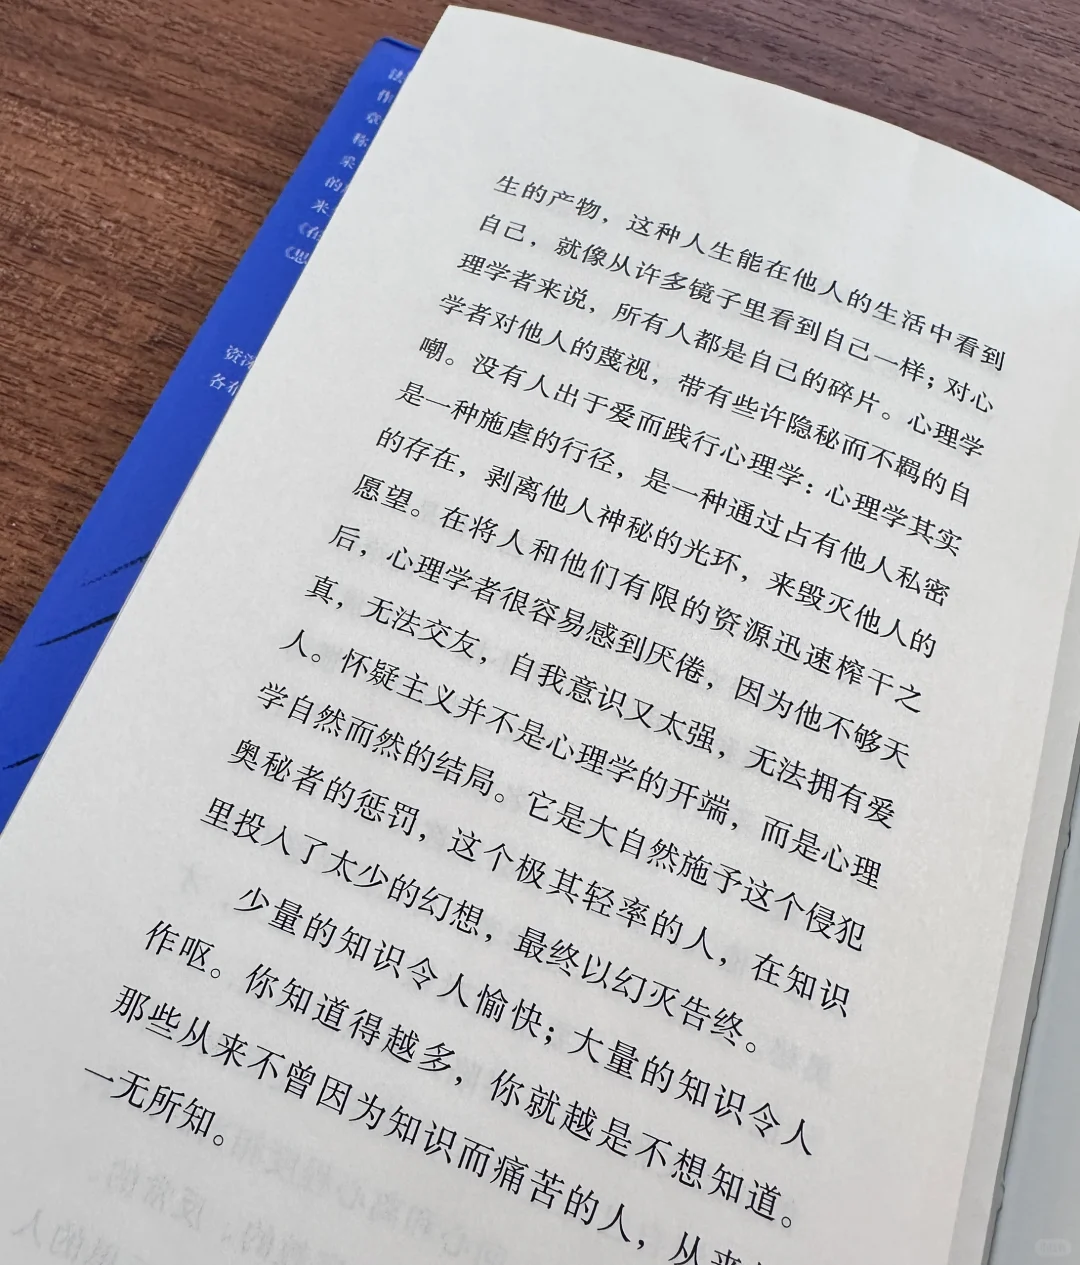 生的产物，这种人生能在他人的生活中看到
自己，就像从许多镜子里看到自己一样；对心
理学者来说，所有人都是自己的碎片。心理学
学者对他人的蔑视，带有些许隐秘而不羁的自
嘲。没有人出于爱而践行心理学：心理学其实
是一种施虐的行径，是一种通过占有他人私密
的存在，剥离他人神秘的光环，来毁灭他人的
愿望。在将人和他们有限的资源迅速榨干之
后，心理学者很容易感到厌倦，因为他不够天
真，无法交友，自我意识又太强，无法拥有爱
人。怀疑主义并不是心理学的开端，而是心理
学自然而然的结局。它是大自然施予这个侵犯
奥秘者的惩罚，这个极其轻率的人，在知识
里投入了太少的幻想，最终以幻灭告终。
少量的知识令人愉快；大量的知识令人
作呕。你知道得越多，你就越是不想知道。
那些从来不曾因为知识而痛苦的人，从来
一无所知。
法
作
章
称
的
米
《在
《思
资深
各在